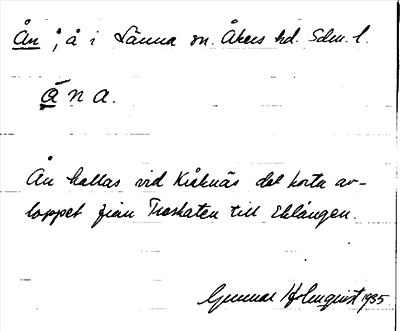 Ån, å i Länna sn. Åkers hd. Sdm. l.
åna.
Ån kallas vid Kråknäs det korta av-
loppet från Troskaten till Eklången.
Gunnar Holmquist 1935